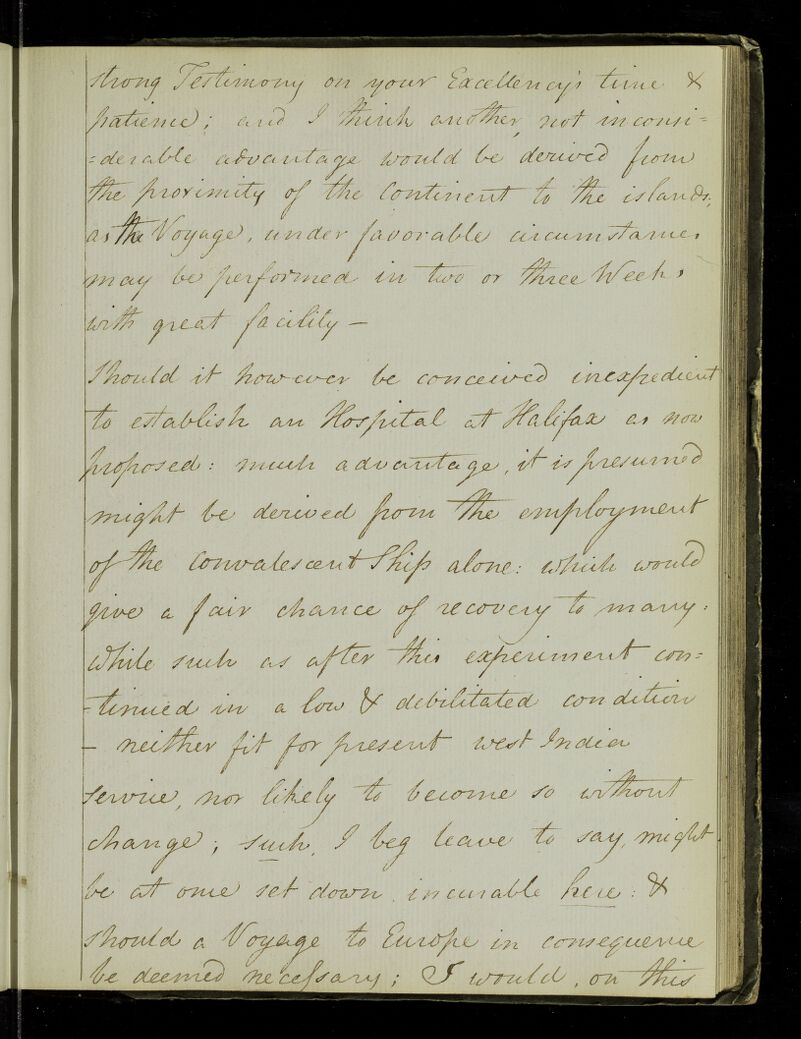 strong Testimony on your Excellency's time &
patience; and I think another, not inconsi=
=derable advantage would be derived from
the proximity of the Continent to the islands,
as the Voyage, under favorable circumstances
may be performed in two or three Weeks
with great facility —
Should it however be conceived inexpedient
to establish an Hospital at Halifax as now
proposed: much advantage, it is presumed
might be derived from the employment
of the Convalescent Ship alone: which would
give a fair chance of recovery to many:
While such as after this experiment con=
=tinued in a low & debilitated condition
— neither fit for present west India
service, nor likely to become so without
change; such, I beg leave to say, might
be at once set down incurable here: &
should a Voyage to Europe in consequence
be deemed necessary; I would, on this